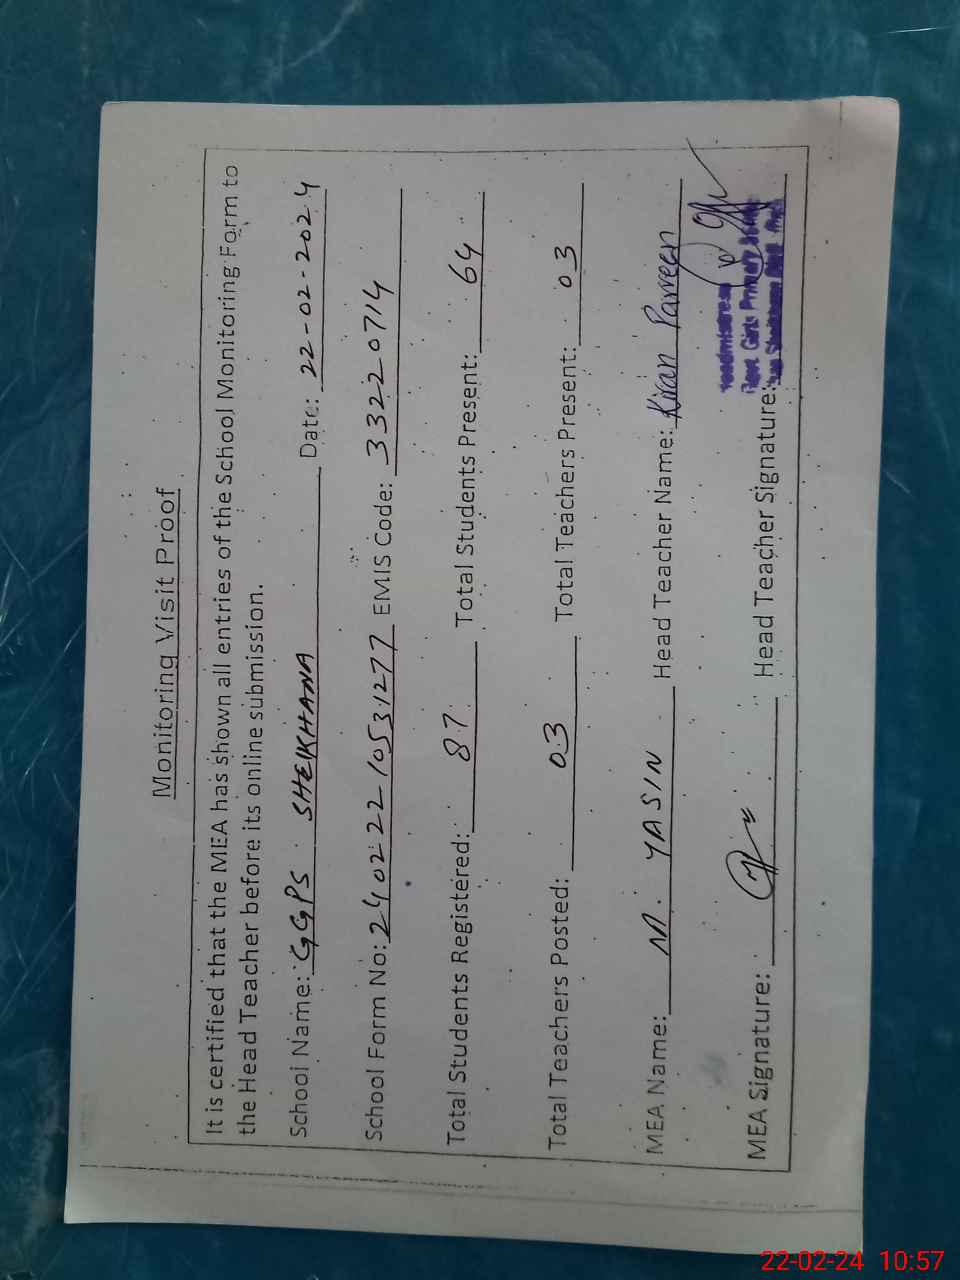 Monitoring Visit Proof
It is certified that the MEA has shown all entries of the School Monitoring Form to
the Head Teacher before its online submission.
School Name: GGPS SHEIKHANA Date: 22-02-2024
School Form No: 24022210531277 EMIS Code: 33220714
Total Students Registered: 87 Total Students Present: 64
Total Teachers Posted: 03 Total Teachers Present: 03
MEA Name: M. YASIN Head Teacher Name: Kiran Parveen
Headmistress
Govt. Girls Primary
MEA Signature: Head Teacher Signature:
22-02-24 10:57